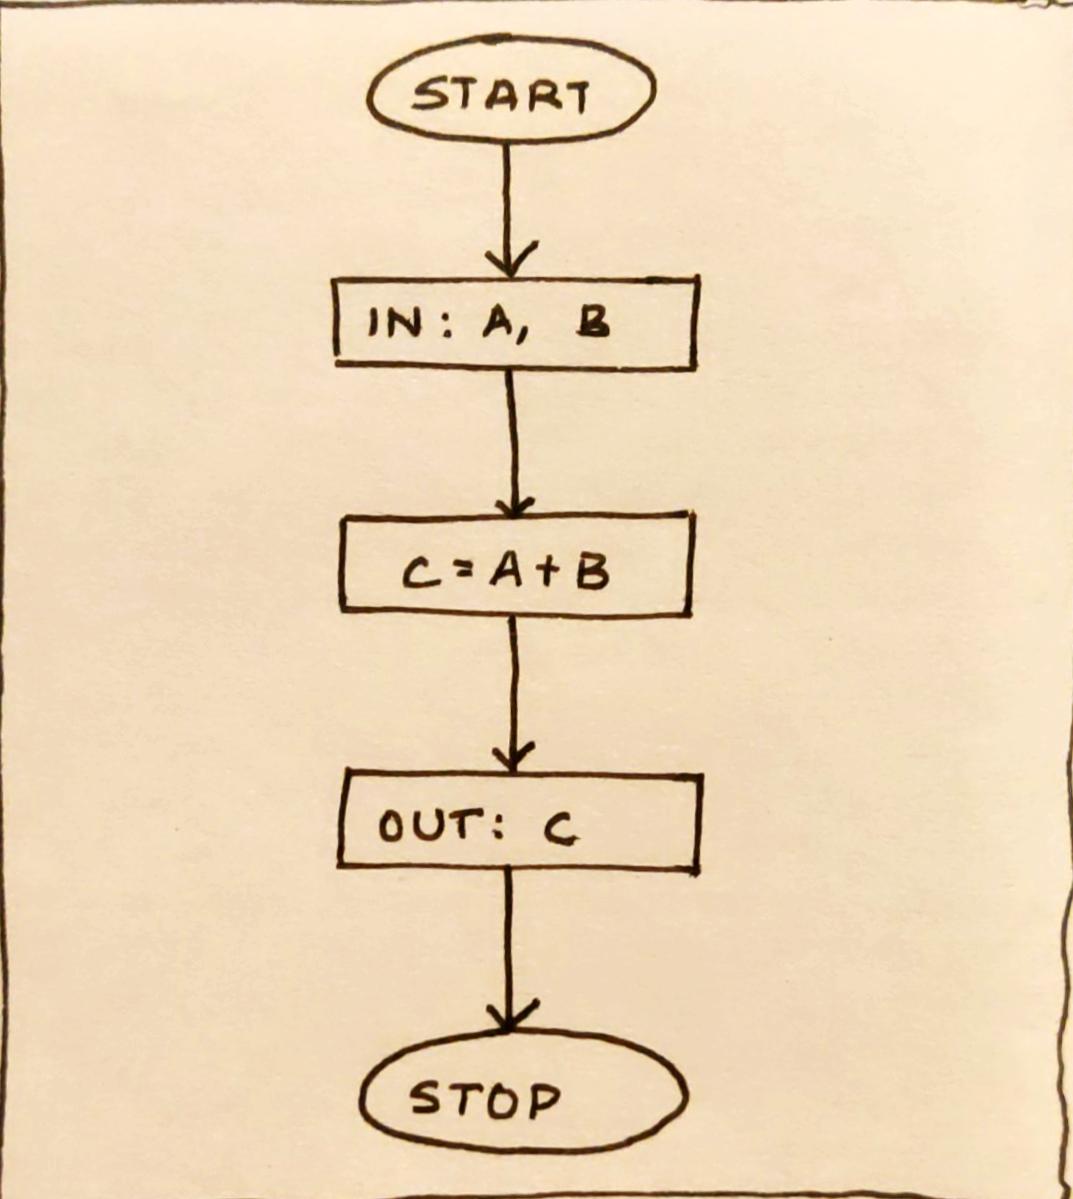 START
IN: A, B
C=A+B
OUT: C
STOP